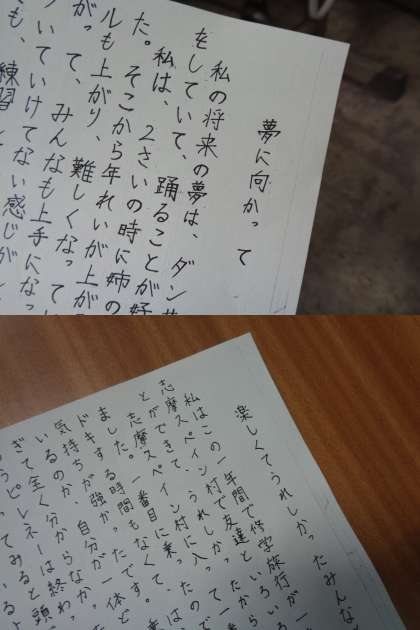 夢に向かって
私の将来の夢は、ダン
をしていて、踊ることが好
私は、2さいの時に姉の
た。そこから年れいが上が
ルも上がり、難しくなって
がって、みんなも上手になっ
ついていけてない感じが
も、練習
楽しくてうれしかったみんな
私はこの一年間で修学旅行
志摩スペイン村で友達といろ
とができて、うれしかった
志摩スペイン村に入ったの
ました。一番目に乗って、
ドキする時間もなくて、
気持ちが強かったです。
いるのか、自分が一体ど
ぎて全く分からなかっ
ピレネーは終わっ
てみると頭